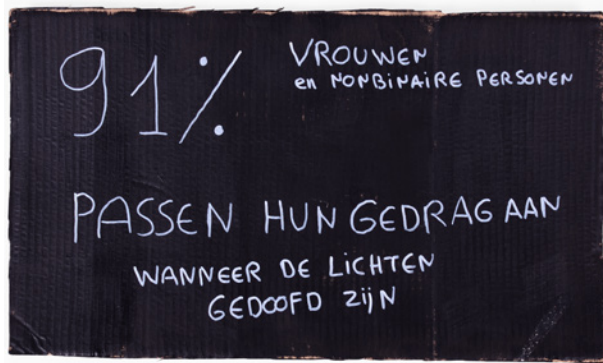 91% VROUWEN
en NONBINAIRE PERSONEN
PASSEN HUN GEDRAG AAN
WANNEER DE LICHTEN
GEDOOFD ZIJN